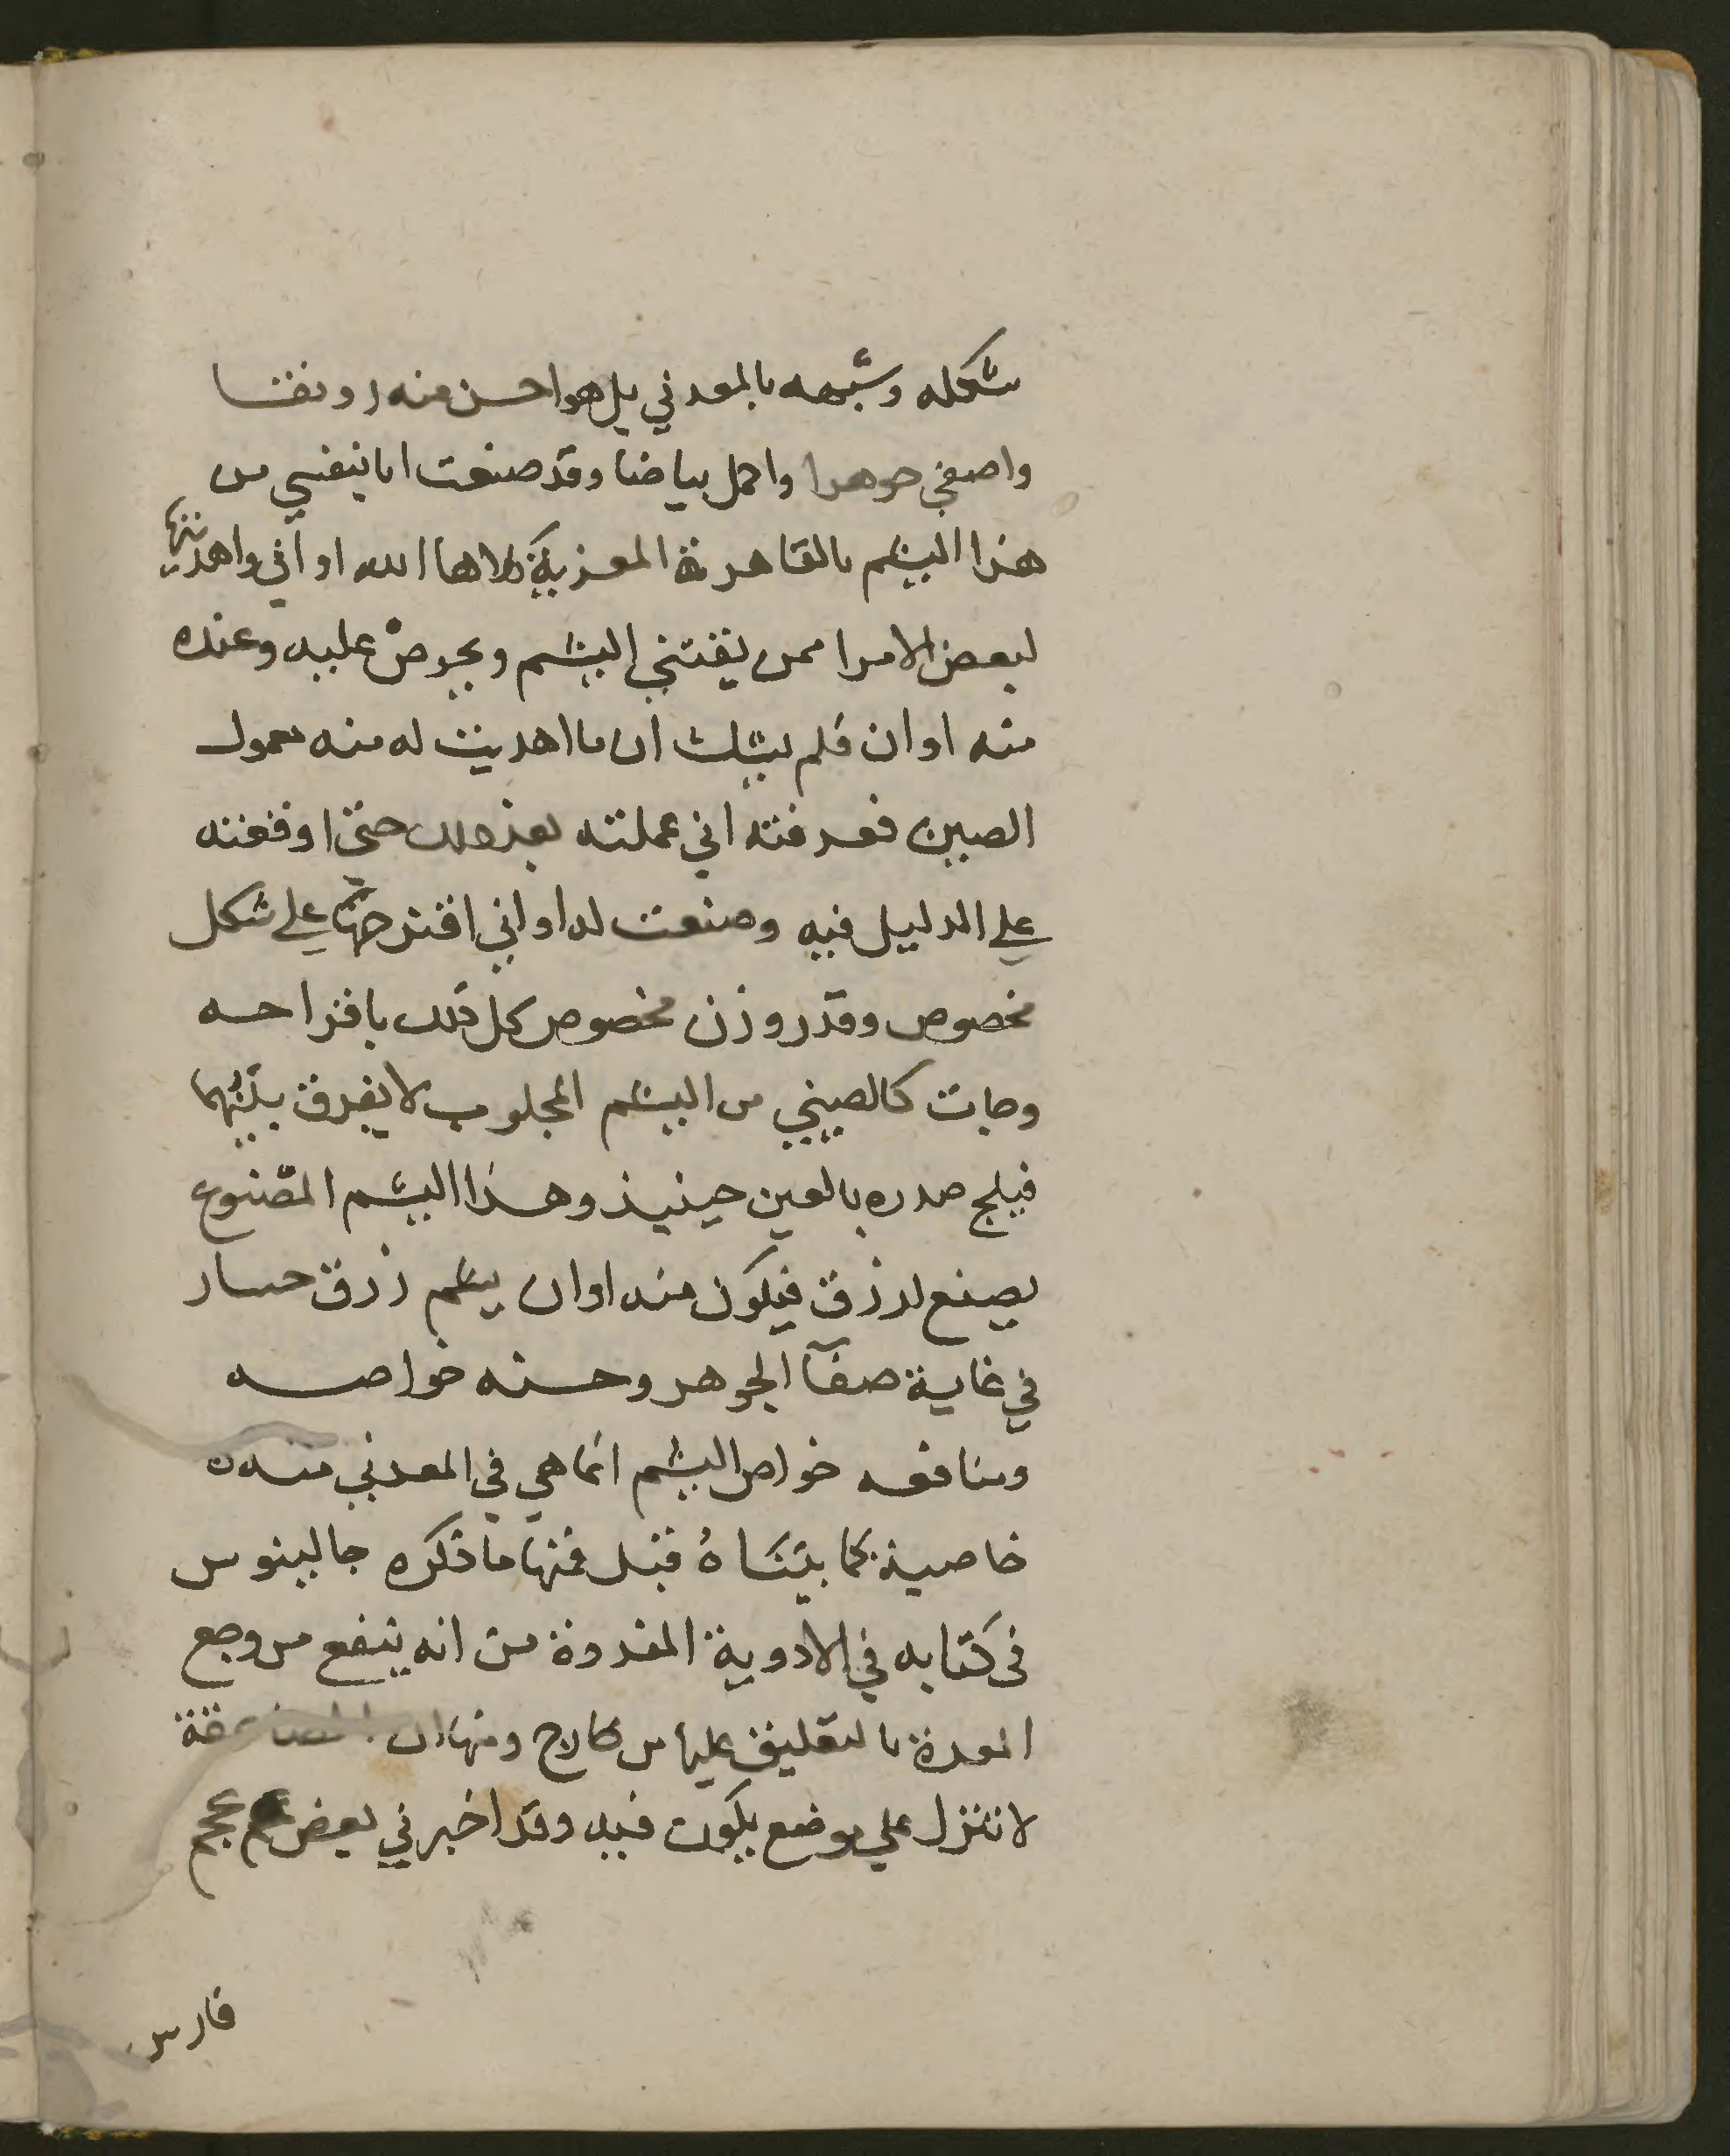 شكله وشبهه بالمعدني بل هو احسن منه رونقا
واصفي جوهرا واكمل بياضا وقد صنعت انا بنفسي من
هذا اليشم بالقاهرة المعزية كلاها الله اواني واهديتها
لبعض الامرا ممن يقتني اليشم ويحرص عليه وعنده
منه اوان فلم يشك ان ما اهديت له منه معمول
الصين فعرفته اني عملته بعد ذلك حتي اوقفته
علي الدليل فيه وصنعت له اواني اقترحها علي شكل
مخصوص وقدر وزن مخصوص كل ذلك باقتراحه
وجات كالصيني من اليشم المجلوب لا يفرق بينهما
فيلج صدره بالعين حينيذ وهذا اليشم المصنوع
يصنع ازرق فيكون منه اوان يشم زرق حسان
في غاية صفآ الجوهر وحسنه خواصه
ومنافعه خواص اليشم انما هي في المعدني منه ه
خاصية كما بيناه قبل فمنها ما ذكره جالينوس
في كتابه في الادوية المفردة من انه ينفع من وجع
المعدة بالتعليق عليها من خارج ومنها ان الصاعقة
لا تنزل علي موضع يكون فيه وقد اخبرني بعض عجم
فارس